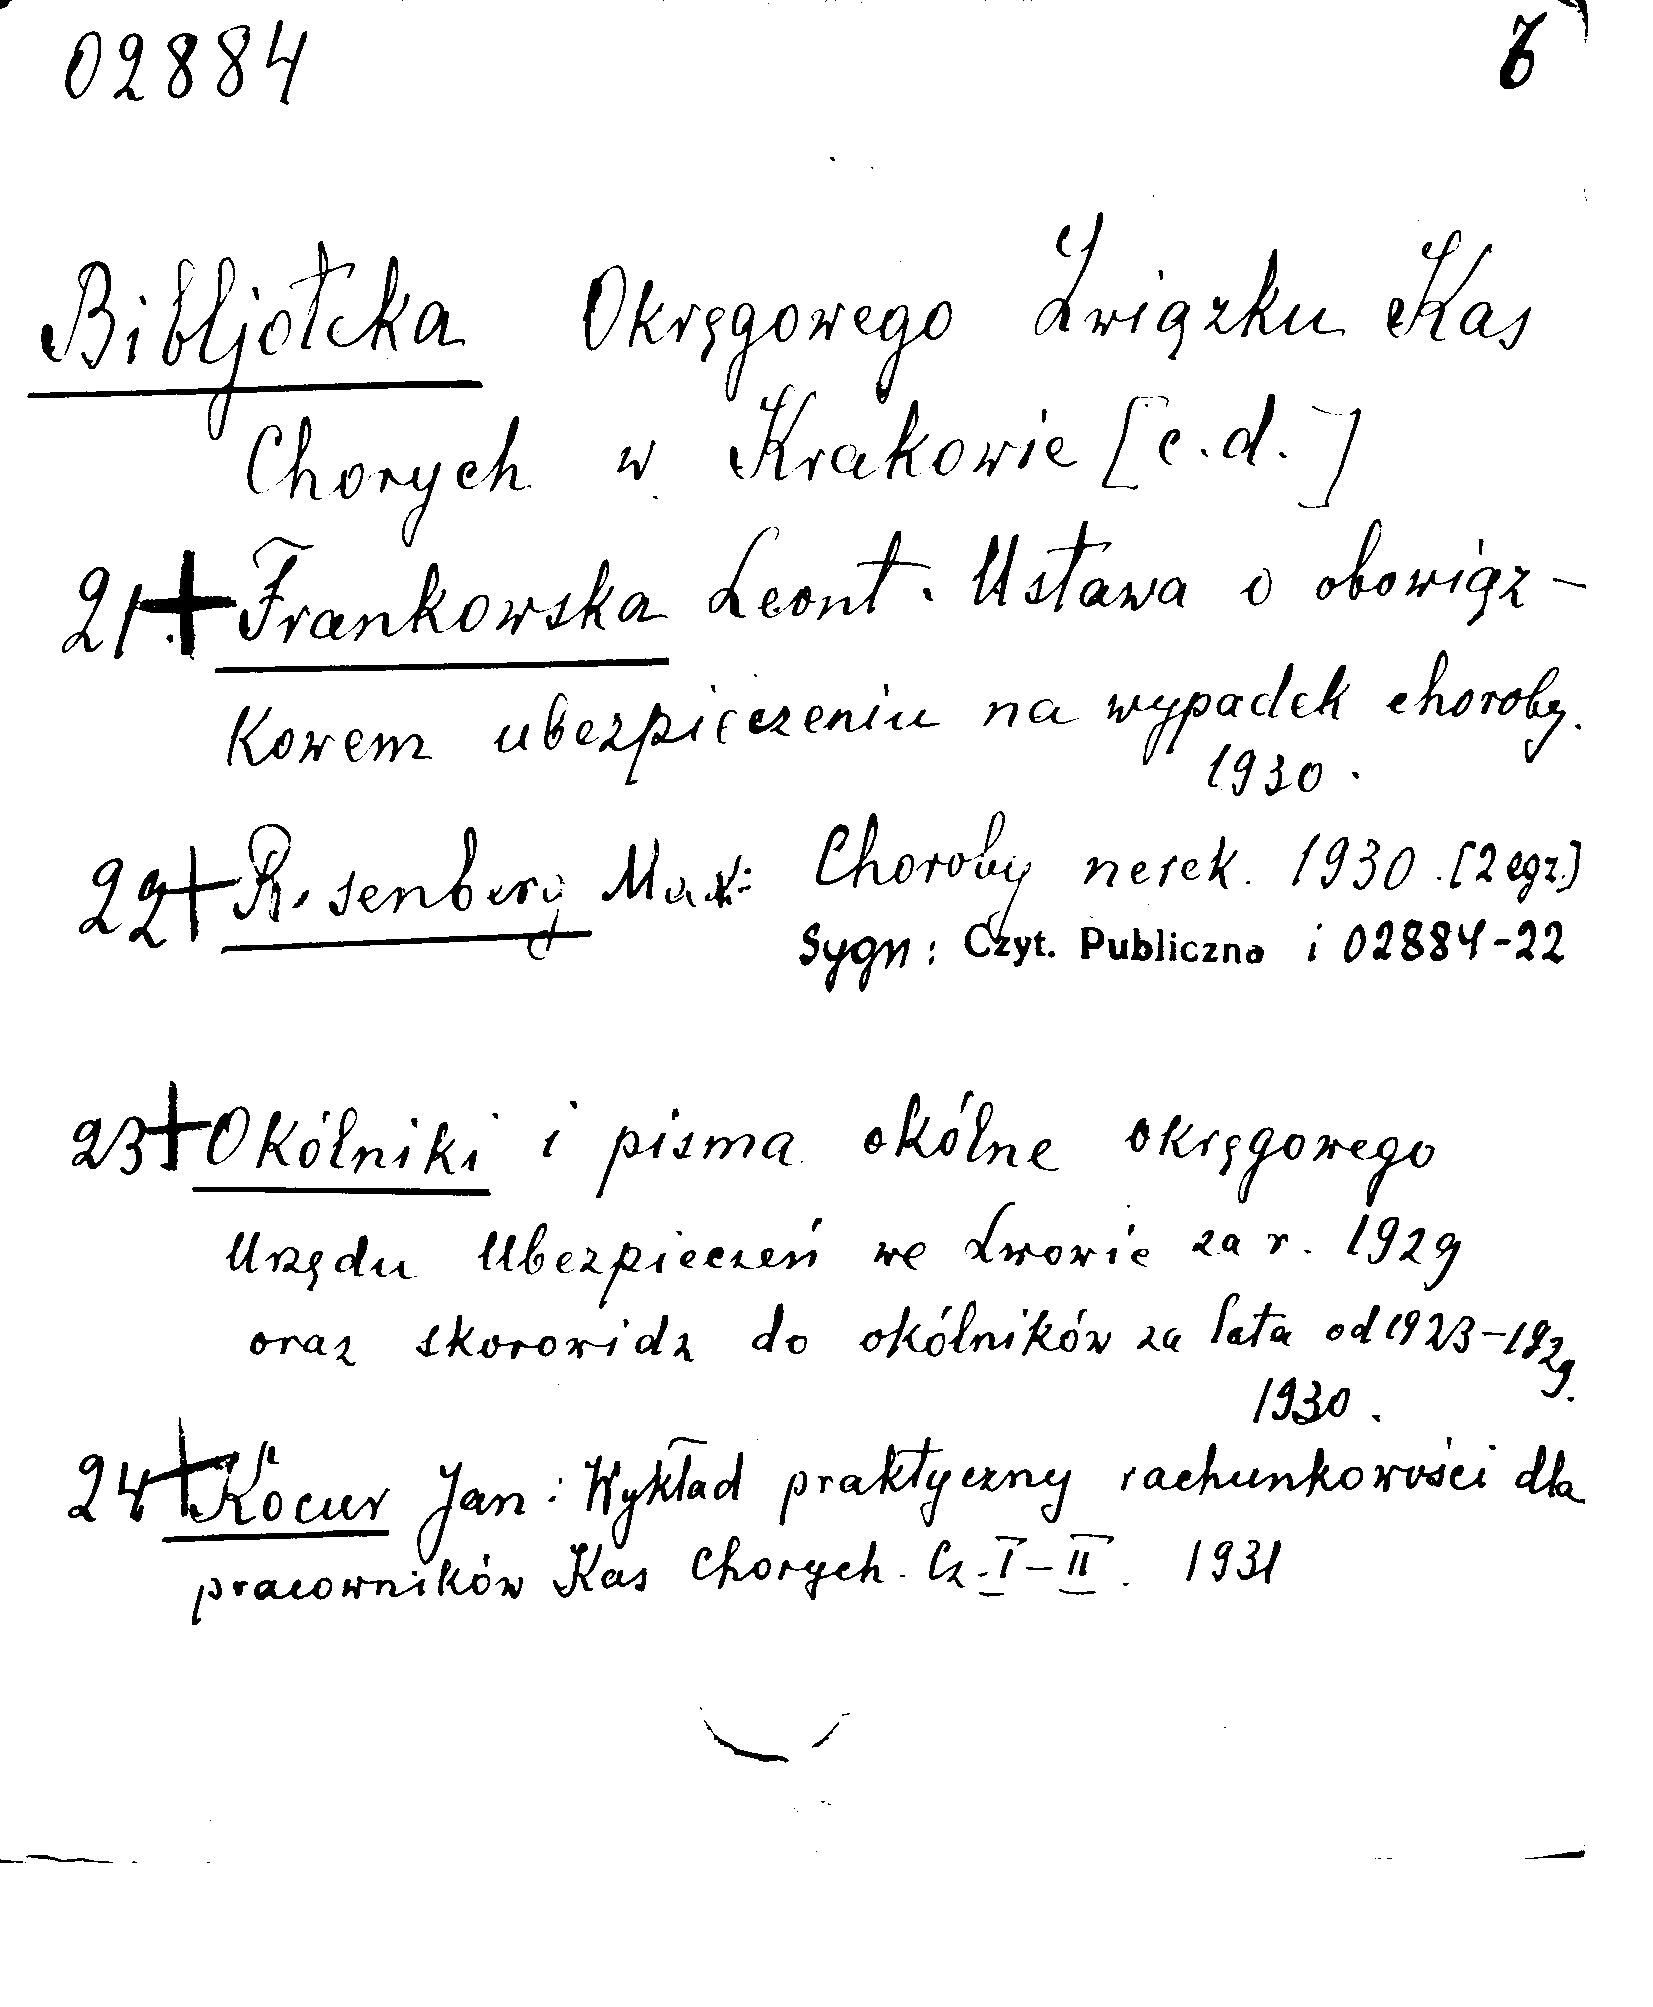 02884 6
Bibljoteka Okręgowego Związku Kas
Chorych w Krakowie [c.d.]
21.+ Frankowska Leont. Ustawa o obowiąz-
kowem ubezpieczeniu na wypadek choroby.
1930.
22+ Rosenberg Max: Choroby nerek. 1930. [2 egz.]
Sygn: Czyt. Publiczna i 02884-22
23+ Okólniki i pisma okólne okręgowego
Urzędu Ubezpieczeń we Lwowie za r. 1929
oraz skorowidz do okólników za lata od 1923-1929.
1930.
24+ Kocur Jan: Wykład praktyczny rachunkowości dla
pracowników Kas Chorych. Cz. I-II. 1931